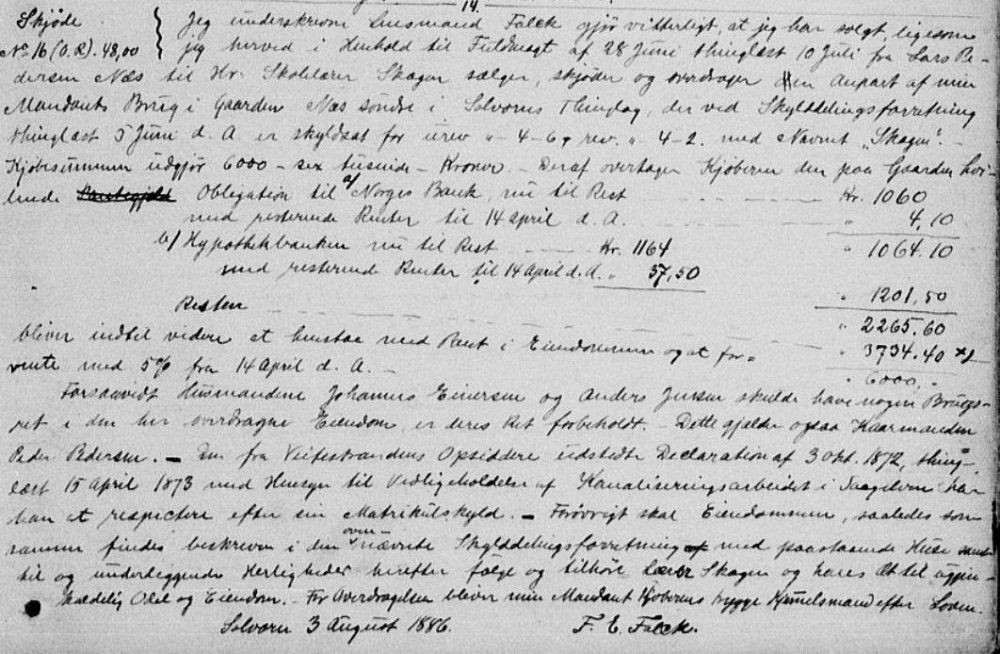 14.
Skjøde
No 16 (O.R.) 48,00
Jeg underskrevne Lensmand Falck gjør vitterligt, at jeg har solgt, ligesom
jeg herved i Henhold til Fuldmagt af 28 Juni thinglæst 10 Juli fra Lars Pe-
dersen Næs til Hr. Skolelærer Skagen sælger, skjøder og overdrager en Anpart af min
Mandants Brug i Gaarden Næs søndre i Solvorns Thinglag, der ved Skylddelingsforretning
thinglæst 5 Juni d. A. er skyldsat for urev „ - 4 - 6, rev. „ - 4 - 2. med Navnet „Skagen". -
Kjøbesummen udgjør 6000 - sex tusinde - Kroner. - Deraf overtager Kjøberen den paa Gaarden hvi-
lende Obligation til a/ Norges Bank, nu til Rest Kr. 1060
med resterende Renter til 14 april d. A. „ 4,10
b/ Hypothekbanken nu til Rest Kr. 1164 „ 1064.10
med resterende Renter til 14 April d. A. „ 37,50
„ 1201,50
Resten „ 2265.60
bliver indtil videre at henstaa med Pant i Eiendommen og at for- „ 3734.40 x/
rente med 5% fra 14 April d. A. - „ 6000. „
Forsaavidt Husmændene Johannes Einersen og Anders Jensen skulde have nogen Brugs-
ret i den her overdragne Eiendom, er deres Ret forbeholdt. - Dette gjælder ogsaa Kaarmanden
Peder Pedersen. - Den fra Veitestrandens Opsiddere udstedte Declaration af 3 Okt. 1872, thing-
læst 15 April 1873 med Hensyn til Vedligeholdelse af Kanaliseringsarbeidet i har
han at respectere efter sin Matrikulskyld. - Forøvrigt skal Eiendommen, saaledes som
samme findes beskreven i den ovennævnte Skylddelingsforretning med paastaaende Huse samt
til og underliggende Herligheder herefter følge og tilhøre Lærer Skagen og haves At til uigjen-
kaldelig Odel og Eiendom. - For Overdragelsen bliver min Mandant Kjøberens trygge Hjemmelsmand efter Loven.
Solvorn 3 August 1886. F. E. Falck.